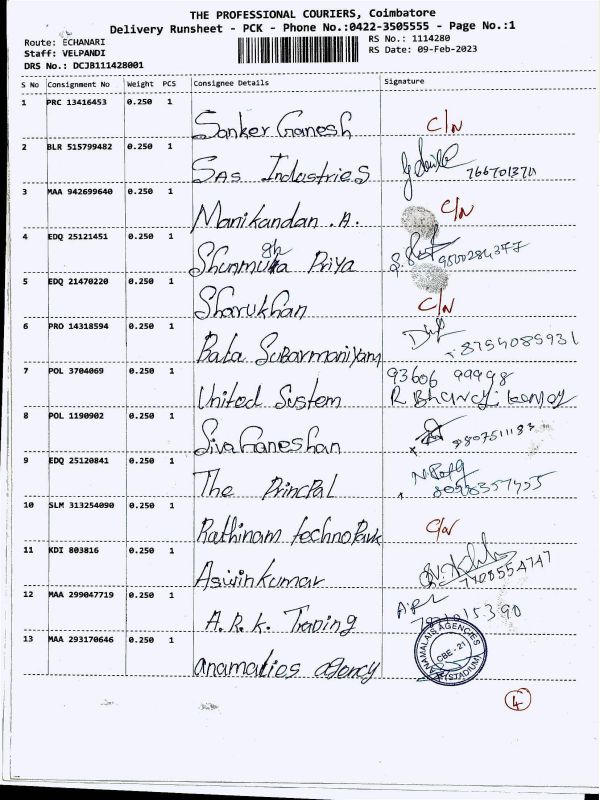 THE PROFESSIONAL COURIERS, Coimbatore
Delivery Runsheet - PCK - Phone No.:0422-3505555 - Page No.:1
Route: ECHANARI
RS No.: 1114280
Staff: VELPANDI
RS Date: 09-Feb-2023
DRS No.: DCJB111428001
S No Consignment No Weight PCS Consignee Details Signature
1 PRC 13416453 0.250 1
Sanker Ganesh C/N
2 BLR 515799482 0.250 1
Sas Industries
3 MAA 942699640 0.250 1
Manikandan .A. C/N
4 EDQ 25121451 0.250 1
Priya 9500284377
5 EDQ 21470220 0.250 1
Sharukhan C/N
6 PRO 14318594 0.250 1
Bala Subarmaniyam 8754085931
7 POL 3704069 0.250 1 93606 99998
United System R
8 POL 1190902 0.250 1
Siva Ganeshan
9 EDQ 25120841 0.250 1
The PrincPal
10 SLM 313254090 0.250 1
Rathinam technoPark C/N
11 KDI 803816 0.250 1
Aswin kumar 7708554747
12 MAA 299047719 0.250 1
A.R.K. Trading
13 MAA 293170646 0.250 1
anamalies agency
ANAMALAIS AGENCIES
CBE - 21
(STADIUM)
4